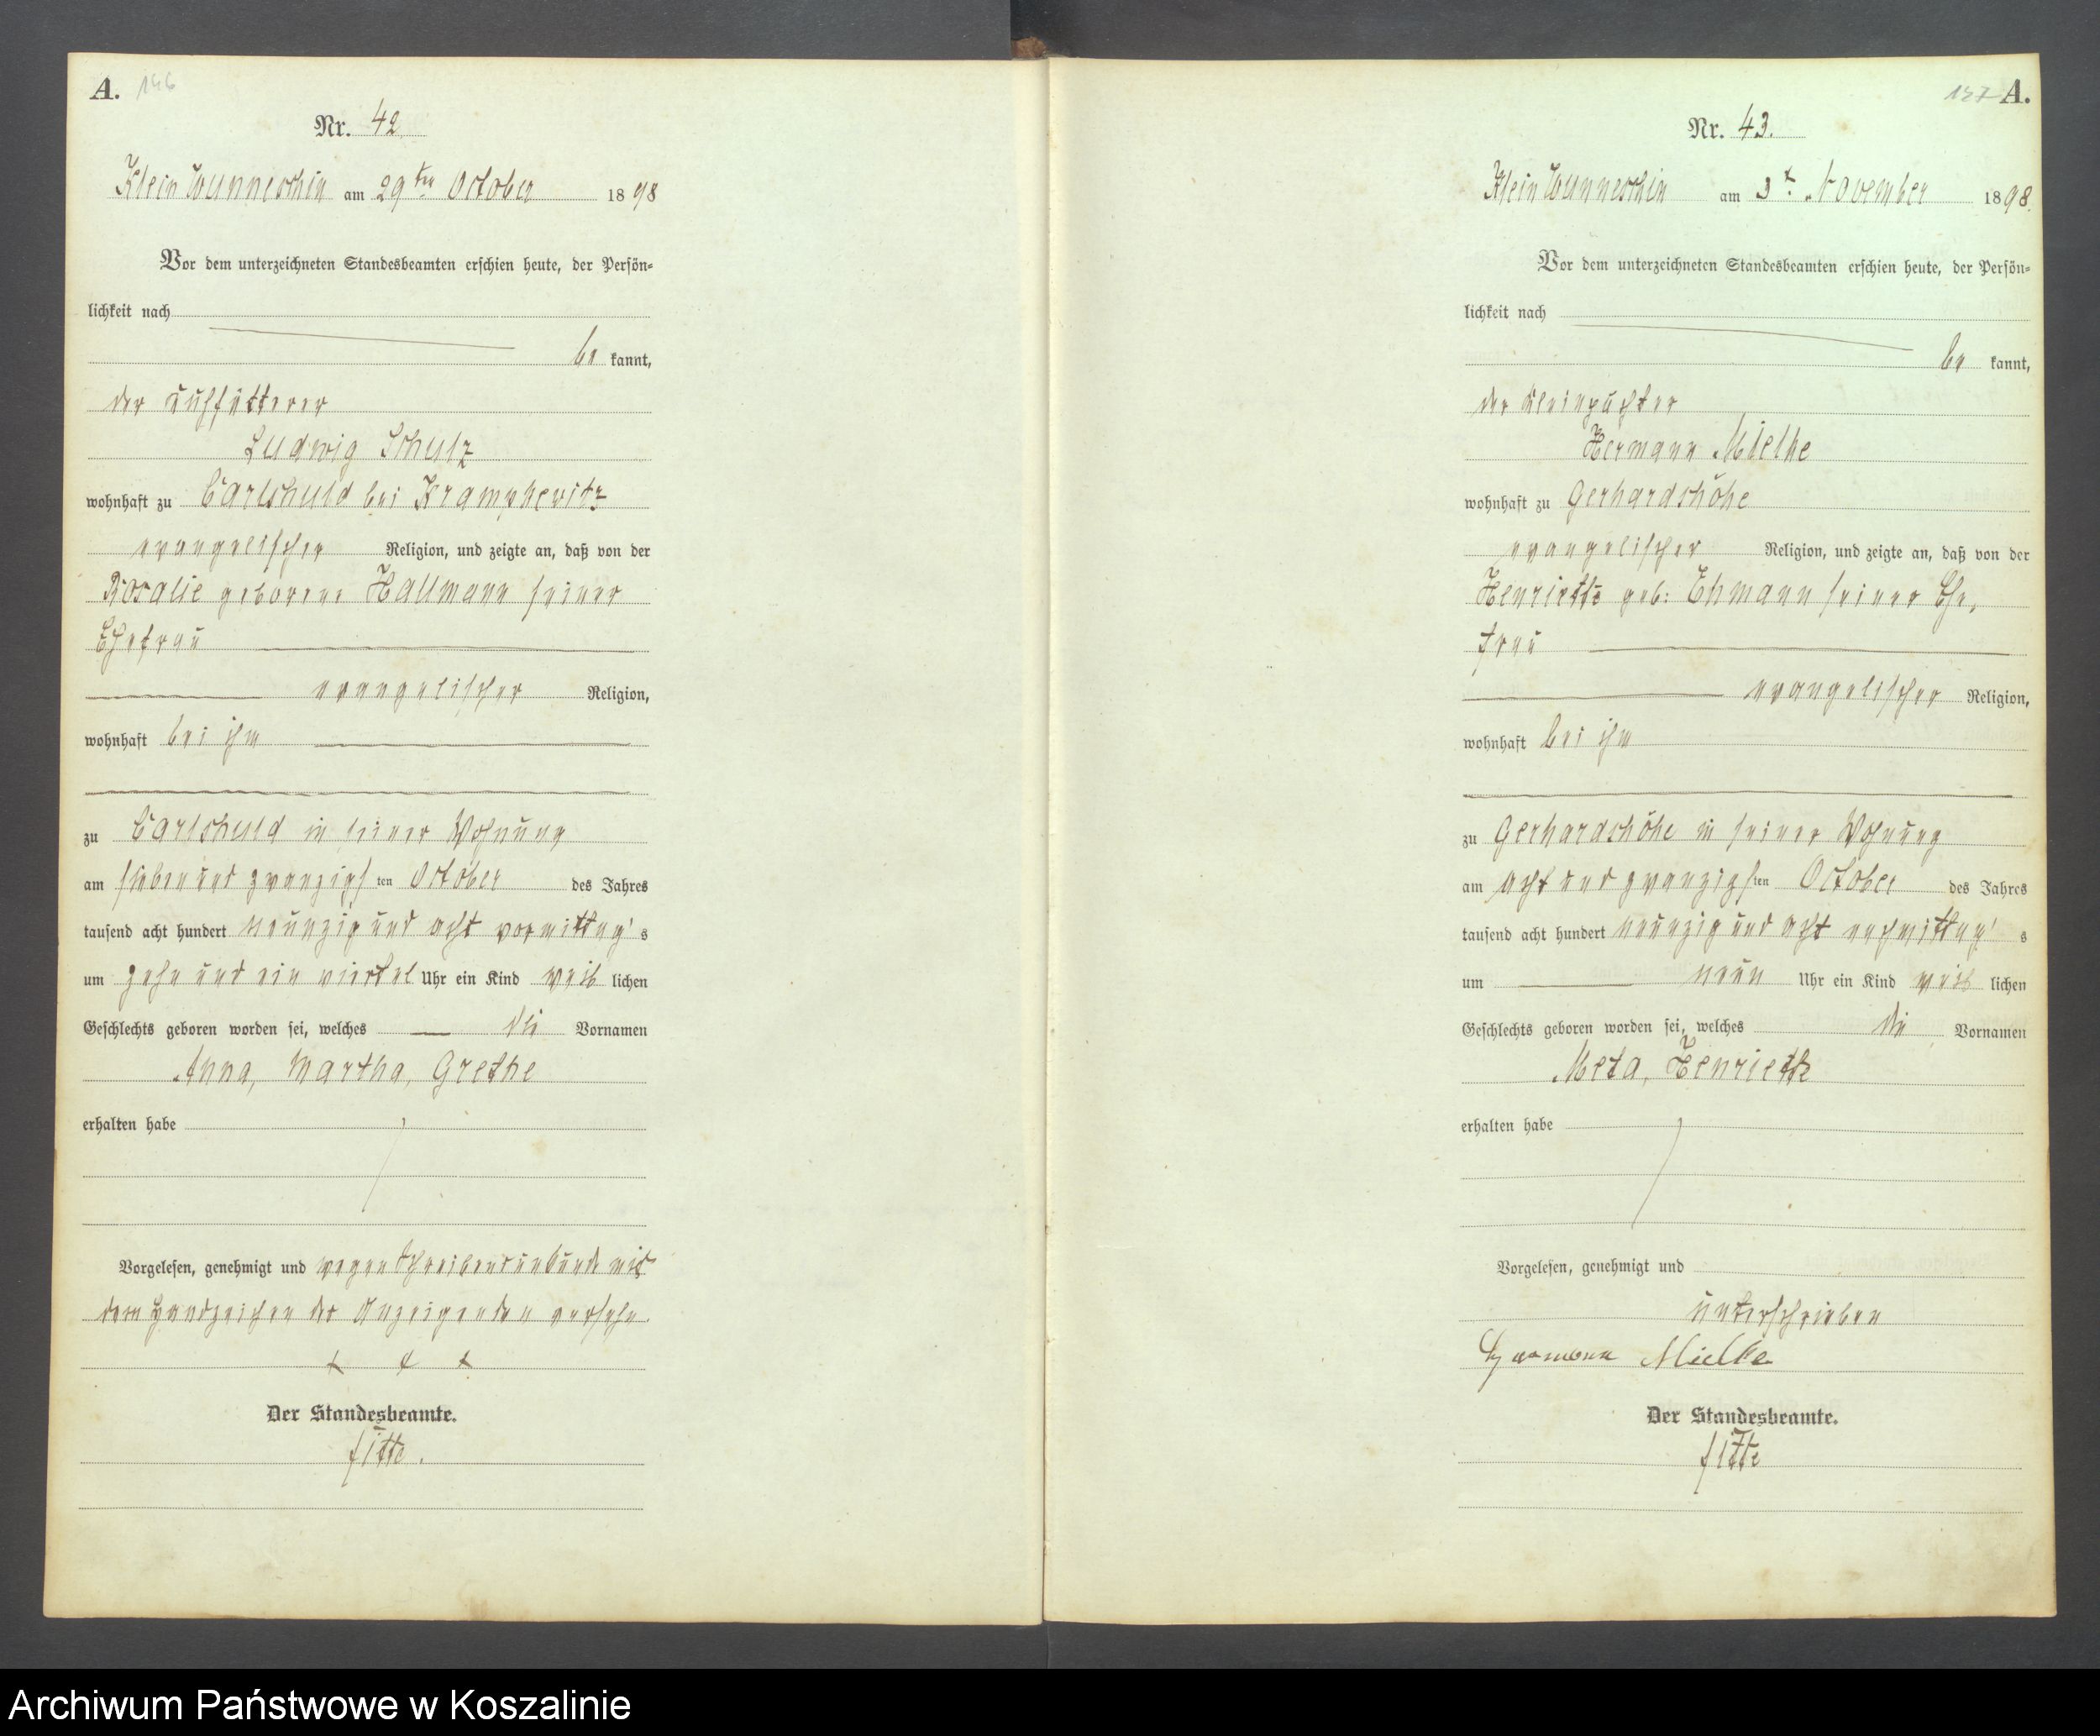 A. 146
Nr. 42
Klein Wunneschin am 29ten October 1898
Vor dem unterzeichneten Standesbeamten erschien heute, der Persön=
lichkeit nach
be kannt,
der Kuhfütterer
Ludwig Schulz
wohnhaft zu Carlshuld bei Krampkewitz
evangelischer Religion, und zeigte an, daß von der
Rosalie geborene Hallmann seiner
Ehefrau
evangelischer Religion,
wohnhaft bei ihm
zu Carlshuld in seiner Wohnung
am siebenundzwanzigsten October des Jahres
tausend acht hundert neunzig und acht vormittags
um zehn und ein viertel Uhr ein Kind weiblichen
Geschlechts geboren worden sei, welches die Vornamen
Anna, Martha, Grethe
erhalten habe
Vorgelesen, genehmigt und wegen Schreibensunkunde mit
dem Handzeichen des Anzeigenden versehn.
+ + +
Der Standesbeamte.
157 A.
Nr. 43.
Klein Wunneschin am 3t. November 1898.
Vor dem unterzeichneten Standesbeamten erschien heute, der Persön=
lichkeit nach
be kannt,
der Kleinpächter
Hermann Mielke
wohnhaft zu Gerhardshöhe
evangelischer Religion, und zeigte an, daß von der
Henriette geb: Ehmann seiner Ehe,
frau
evangelischer Religion,
wohnhaft bei ihm
zu Gerhardshöhe in seiner Wohnung
am acht und zwanzigsten October des Jahres
tausend acht hundert neunzig und acht nachmittags
um neun Uhr ein Kind weiblichen
Geschlechts geboren worden sei, welches die Vornamen
Meta, Henriette
erhalten habe
Vorgelesen, genehmigt und
unterschrieben
Hermann Mielke
Der Standesbeamte.
Archiwum Państwowe w Koszalinie